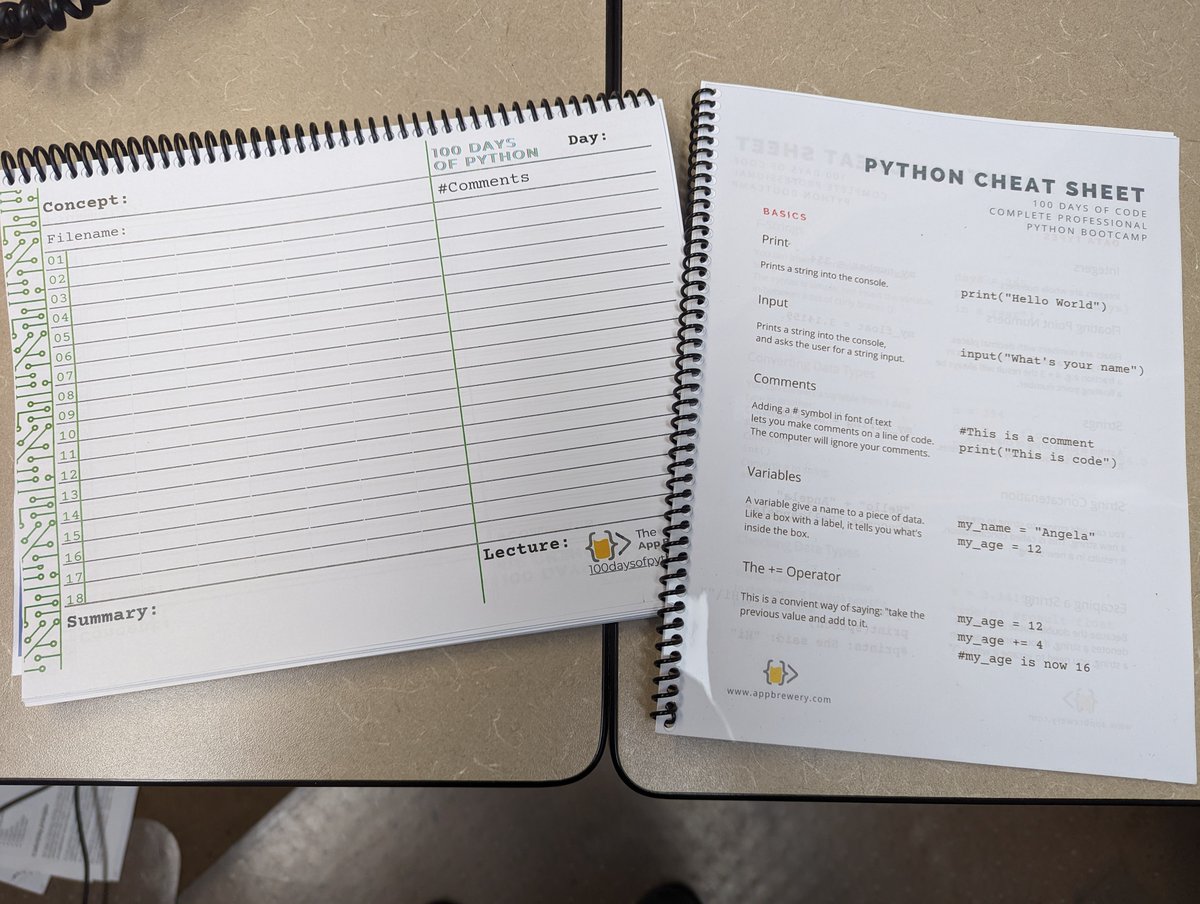 Concept:
100 DAYS
OF PYTHON
Day:
Filename:
#Comments
01
02
03
04
05
06
07
08
09
10
11
12
13
14
15
16
17
18
Lecture:
The
App
100daysofpyt
Summary:
PYTHON CHEAT SHEET
100 DAYS OF CODE
COMPLETE PROFESSIONAL
PYTHON BOOTCAMP
BASICS
Print
Prints a string into the console.
print("Hello World")
Input
Prints a string into the console,
and asks the user for a string input.
input("What's your name")
Comments
Adding a # symbol in font of text
lets you make comments on a line of code.
The computer will ignore your comments.
#This is a comment
print("This is code")
Variables
A variable give a name to a piece of data.
Like a box with a label, it tells you what's
inside the box.
my_name = "Angela"
my_age = 12
The += Operator
This is a convient way of saying: "take the
previous value and add to it.
my_age = 12
my_age += 4
#my_age is now 16
www.appbrewery.com